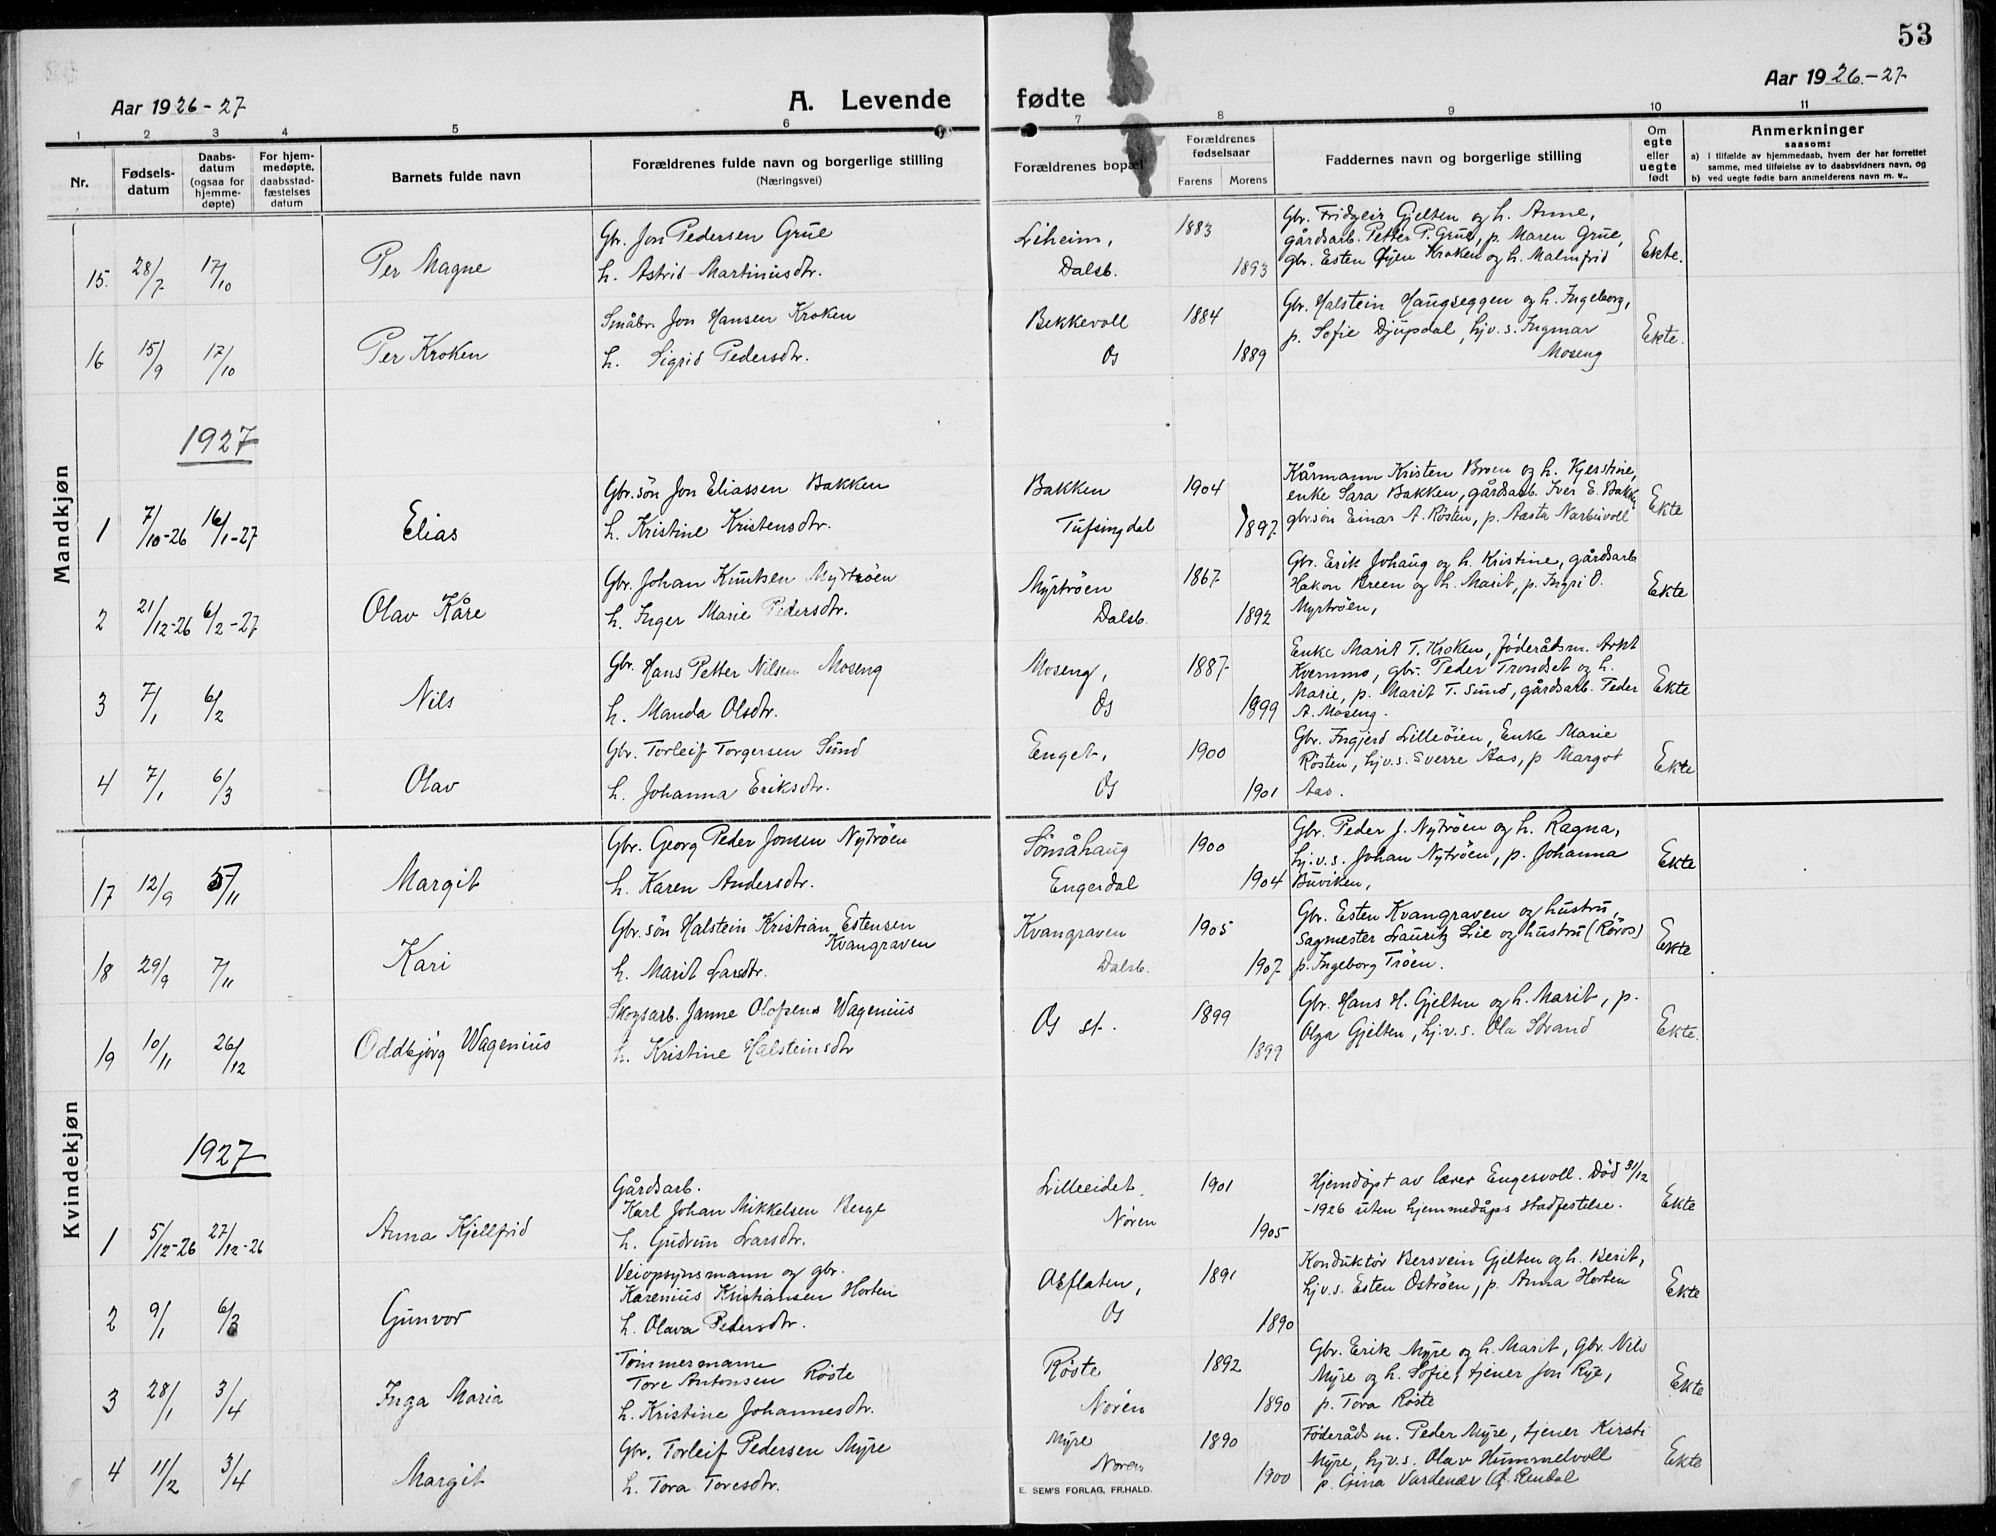 53
Aar 1926-27
A. Levende fødte
Aar 1926-27
1 2 3 4 5 6 7 8 9 10 11
Nr.
Fødsels-datum
Daabs-datum (ogsaa for hjemme-døpte)
For hjem-medøpte, daabsstad-fæstelses datum
Barnets fulde navn
Forældrenes fulde navn og borgerlige stilling
(Næringsvei)
Forældrenes bopæl
Forældrenes fødselsaar
Farens Morens
Faddernes navn og borgerlige stilling
Om egte eller uegte født
Anmerkninger
saasom:
a) i tilfælde av hjemmedaab, hvem der har forrettet samme, med tilføielse av to daabsvidners navn, og
b) ved uegte fødte barn anmelderens navn m. v..
Mandkjøn
15. 28/7 17/10 Per Magne
Gbr. Jon Pedersen Grue
h. Astrid Martinusdtr.
Liheim,
Dalsb.
1883
1893
Gbr. Fridgeir Gjelten og h. Anne,
gårdsarb. Petter P. Grue, p. Maren Grue,
gbr. Esten Øyen Kroken og h. Malmfrid
Ekte.
16 15/9 17/10 Per Kroken
Småbr. Jon Hansen Kroken
h. Sigrid Pedersdtr.
Bekkevoll
Os
1884
1889
Gbr. Halstein Haugseggen og h. Ingeborg,
p. Sofie Djupdal, hj.v.s. Ingmar
Moseng
Ekte.
1927
1 7/10-26 16/1-27 Elias
Gbr.søn Jon Eliassen Bakken
h. Kristine Kristensdtr.
Bakken
Tufsingdal
1904
1897
Kårmann Kristen Broen og h. Kjerstine,
enke Sara Bakken, gårdsarb. Iver E. Bakk
gbr.søn Einar A. Røsten, p. Aasta Narbuvoll
Ekte
2 21/12-26 6/2-27 Olav Kåre
Gbr. Johan Knutsen Myrtrøen
h. Inger Marie Pedersdtr.
Myrtrøen
Dalsb.
1867
1892
Gbr. Erik Johaug og h. Kristine, gårdsarb
Hakon Breen og h. Marit, p. Ingri O.
Myrtrøen,
Ekte
3 7/1 6/2 Nils
Gbr. Hans Petter Nilsen Moseng
h. Manda Olsdtr.
Moseng,
Os
1887
1899
Enke Marit T. Kroken, føderådsm. Arnt
Kvernmo, gbr. Peder Trondset og h.
Marie, p. Marit T. Sund, gårdsarb. Peder
A. Moseng.
Ekte
4 7/1 6/3 Olav
Gbr. Torleif Torgersen Sund
h. Johanna Eriksdtr.
Enget,
Os
1900
1901
Gbr. Ingjerd Lilleøien, Enke Marie
Røsten, hj.v.s. Sverre Aas, p Margot
Aas.
Ekte
Kvindekjøn
17 12/9 7/11 Margit
Gbr. Georg Peder Jonsen Nytrøen
h. Karen Andersdtr.
Sømåhaug
Engerdal
1900
1904
Gbr. Peder J. Nytrøen og h. Ragna,
hj.v.s. Johan Nytrøen, p. Johanna
Buviken,
Ekte
18 29/9 7/11 Kari
Gbr.søn Halstein Kristian Estensen
Kvangraven
h. Marit Larsdtr.
Kvangraven
Dalsb.
1905
1907
Gbr. Esten Kvangraven og hustru,
Sagmester Lauritz Lie og hustru (Røros)
p. Ingeborg Trøen.
Ekte
19 10/11 26/12 Oddbjørg Wagenius
Skogsarb. Janne Olofsens Wagenius
h. Kristine Halsteinsdtr
Os st.
1899
1899
Gbr. Hans H. Gjelten og h. Marit, p.
Olga Gjelten, hj.v.s. Ola Strand
Ekte.
1927
1 5/12-26 27/12-26 Anna Kjellfrid
Gårdsarb.
Karl Johan Mikkelsen Berge
h. Gudrun Larsdtr.
Lilleeidet
Nøren
1901
1905
Hjemdøpt av lærer Engesvoll. Død 31/12
-1926 uten hjemmedåps stadfestelse.
Ekte
2 9/1 6/3 Gunvor
Veiopsynsmann og gbr.
Karenius Kristiansen Horten
h. Olava Pedersdtr.
Osflaten,
Os
1891
1890
Konduktør Bersvein Gjelten og h. Berit,
hj.v.s. Esten Østrøen, p. Anna Horten
Ekte
3 28/1 3/4 Inga Maria
Tømmermann
Tore Antonsen Røste
h. Kristine Johannesdtr.
Røste
Nøren
1892
1890
Gbr. Erik Myre og h. Marit, Gbr. Nils
Myre og h. Sofie, tjener Jon Rye,
p. Tora Røste
Ekte
4 11/2 3/4 Margit
Gbr. Torleif Pedersen Myre
h. Tora Toresdtr.
Myre
Nøren
1890
1900
Føderådsm. Peder Myre, tjener Kirsti
Myre, hj.v.s. Olav Hummelvoll
p. Gina Vardenær Ø. Rendal
Ekte
E. SEM'S FORLAG, FR.HALD.